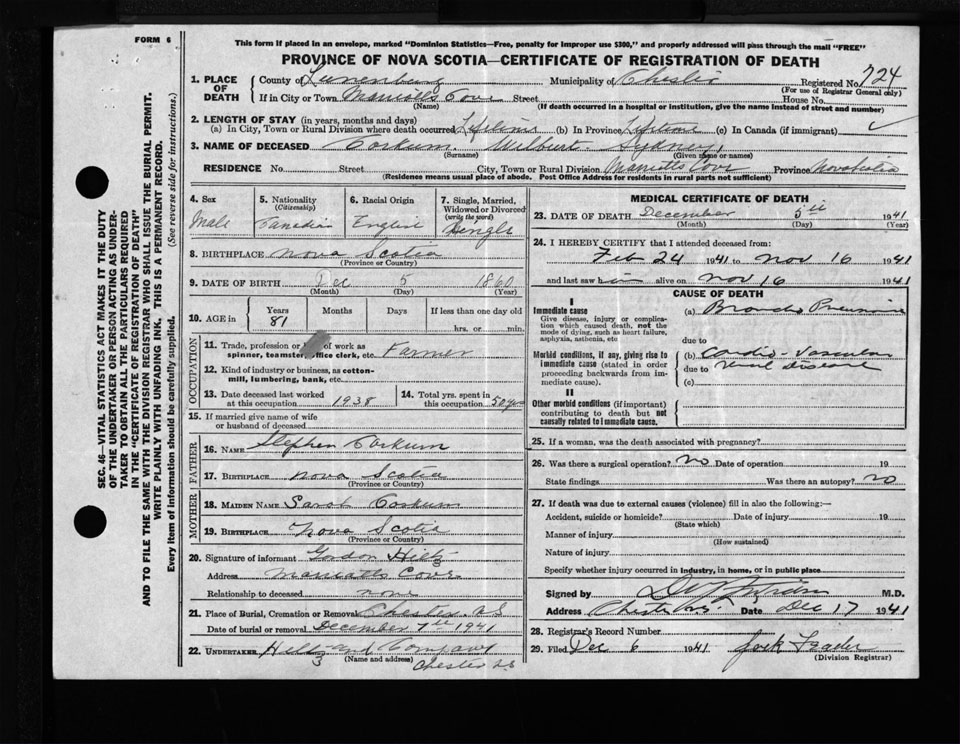 FORM 6
This form if placed in an envelope, marked "Dominion Statistics—Free, penalty for improper use $300," and properly addressed will pass through the mail "FREE"
PROVINCE OF NOVA SCOTIA—CERTIFICATE OF REGISTRATION OF DEATH
SEC. 46—VITAL STATISTICS ACT MAKES IT THE DUTY
OF THE UNDERTAKER OR PERSON ACTING AS UNDER-
TAKER TO OBTAIN ALL THE PARTICULARS REQUIRED
IN THE "CERTIFICATE OF REGISTRATION OF DEATH"
AND TO FILE THE SAME WITH THE DIVISION REGISTRAR WHO SHALL ISSUE THE BURIAL PERMIT.
WRITE PLAINLY WITH UNFADING INK. THIS IS A PERMANENT RECORD.
Every item of information should be carefully supplied. (See reverse side for instructions.)
1. PLACE OF DEATH
County of Lunenburg Municipality of Chester Registered No. 724
(For use of Registrar General only)
If in City or Town Marriotts Cove Street House No.
(Name) (If death occurred in a hospital or institution, give the name instead of street and number)
2. LENGTH OF STAY (in years, months and days)
(a) In City, Town or Rural Division where death occurred Lifetime (b) In Province Lifetime (c) In Canada (if immigrant) ✓
3. NAME OF DECEASED Corkum Wilburt Sydney
(Surname) (Given name or names)
RESIDENCE No. Street City, Town or Rural Division Marriotts Cove Province Nova Scotia
(Residence means usual place of abode. Post Office Address for residents in rural parts not sufficient)
4. Sex
Male
5. Nationality
(Citizenship)
Canadian
6. Racial Origin
English
7. Single, Married,
Widowed or Divorced
(write the word)
Single
8. BIRTHPLACE Nova Scotia
(Province or Country)
9. DATE OF BIRTH Dec 5 1860
(Month) (Day) (Year)
10. AGE in Years Months Days If less than one day
81 hrs. or min.
OCCUPATION
11. Trade, profession or kind of work as
spinner, teamster, office clerk, etc. Farmer
12. Kind of industry or business, as cotton-
mill, lumbering, bank, etc.
13. Date deceased last worked
at this occupation 1938
14. Total yrs. spent in
this occupation 50 yrs
15. If married give name of wife
or husband of deceased
FATHER
16. NAME Stephen Corkum
17. BIRTHPLACE Nova Scotia
(Province or Country)
MOTHER
18. MAIDEN NAME Sarah Corkum
19. BIRTHPLACE Nova Scotia
(Province or Country)
20. Signature of informant Gordon Hiltz
Address Marriotts Cove
Relationship to deceased none
21. Place of Burial, Cremation or Removal Chester N.S.
Date of burial or removal December 7th 1941
22. UNDERTAKER Hiltz and Company
(Name and address) Chester N.S.
MEDICAL CERTIFICATE OF DEATH
23. DATE OF DEATH December 5th 1941
(Month) (Day) (Year)
24. I HEREBY CERTIFY that I attended deceased from:
Feb 24 1941 to Nov 16 1941
and last saw him alive on Nov 16 1941
CAUSE OF DEATH
I
Immediate cause
Give disease, injury or complica-
tion which caused death, not the
mode of dying, such as heart failure,
asphyxia, asthenia, etc
(a) Broncho Pneumonia
due to
Morbid conditions, if any, giving rise to
immediate cause (stated in order
proceeding backwards from im-
mediate cause).
(b) Cardio-Vascular
due to Renal Disease
(c)
II
Other morbid conditions (if important)
contributing to death but not
causally related to immediate cause.
25. If a woman, was the death associated with pregnancy?
26. Was there a surgical operation? No Date of operation 19
State findings Was there an autopsy? No
27. If death was due to external causes (violence) fill in also the following:—
Accident, suicide or homicide? Date of injury 19
(State which)
Manner of injury
(How sustained)
Nature of injury
Specify whether injury occurred in industry, in home, or in public place
Signed by M.D.
Address Chester N.S. Date Dec 17 1941
28. Registrar's Record Number
29. Filed Dec 6 1941
(Division Registrar)